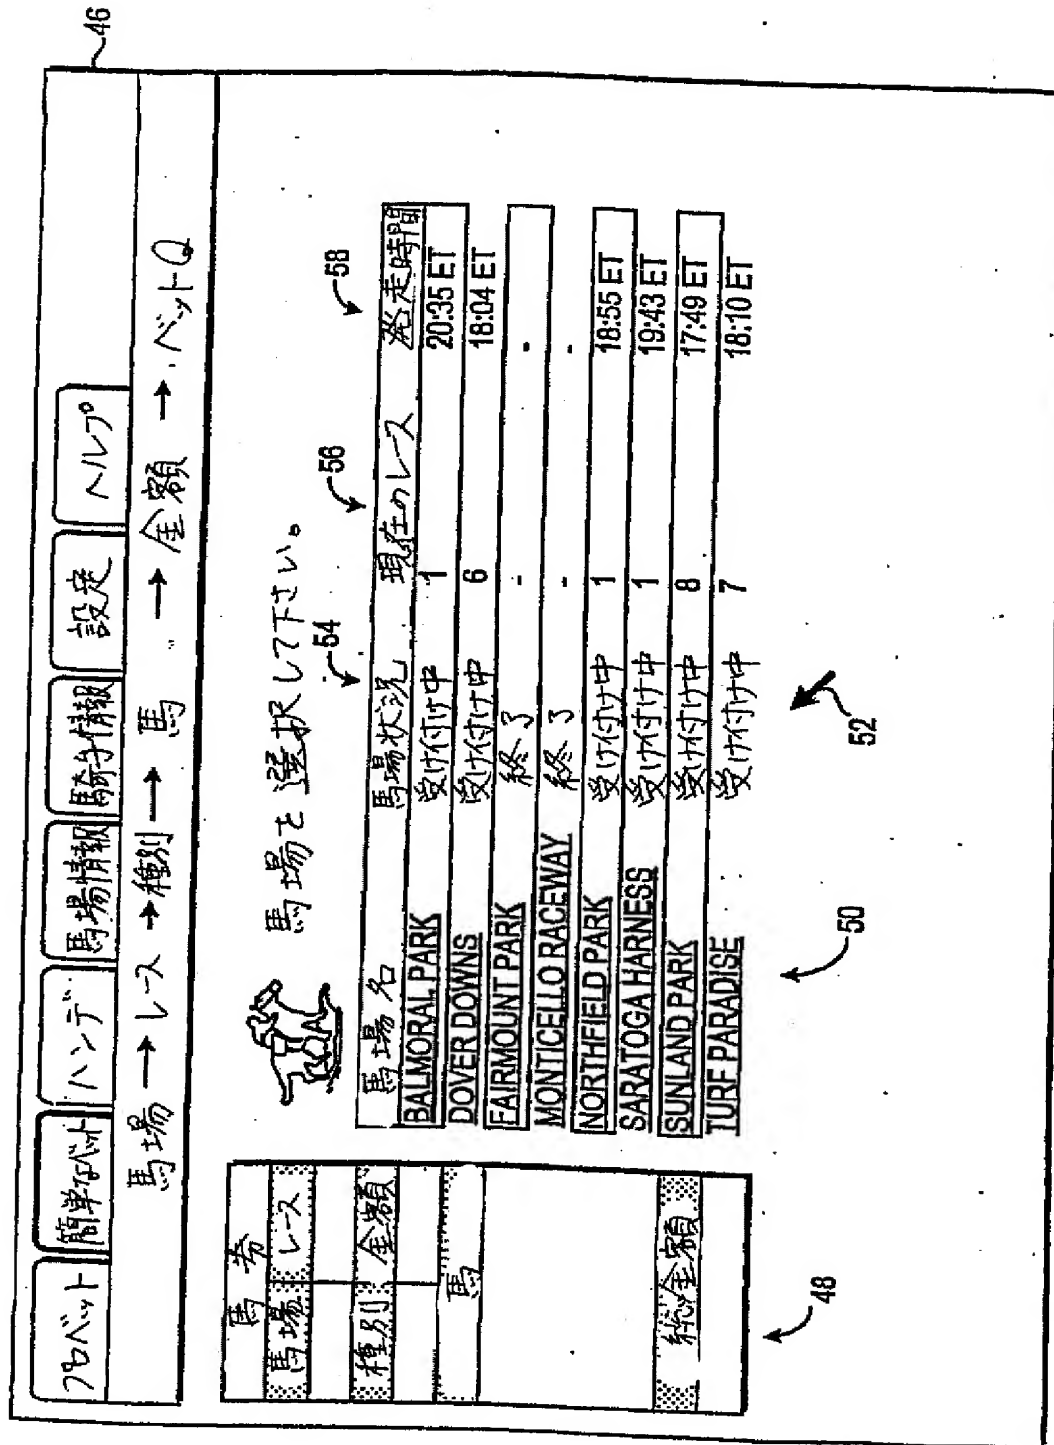 46
プロベット 簡単なベット ハンデ 馬場情報 騎手情報 設定 ヘルプ
馬場 → レース → 種別 → 馬 → 金額 → ベットQ
馬場を選択して下さい。
54 56 58
馬場名 馬場状況 現在のレース 発走時間
BALMORAL PARK 受け付け中 1 20:35 ET
DOVER DOWNS 受け付け中 6 18:04 ET
FAIRMOUNT PARK 終了 - -
MONTICELLO RACEWAY 終了 - -
NORTHFIELD PARK 受け付け中 1 18:55 ET
SARATOGA HARNESS 受け付け中 1 19:43 ET
SUNLAND PARK 受け付け中 8 17:49 ET
TURF PARADISE 受け付け中 7 18:10 ET
50 52
馬券
馬場 レース
種別 金額
馬
総金額
48